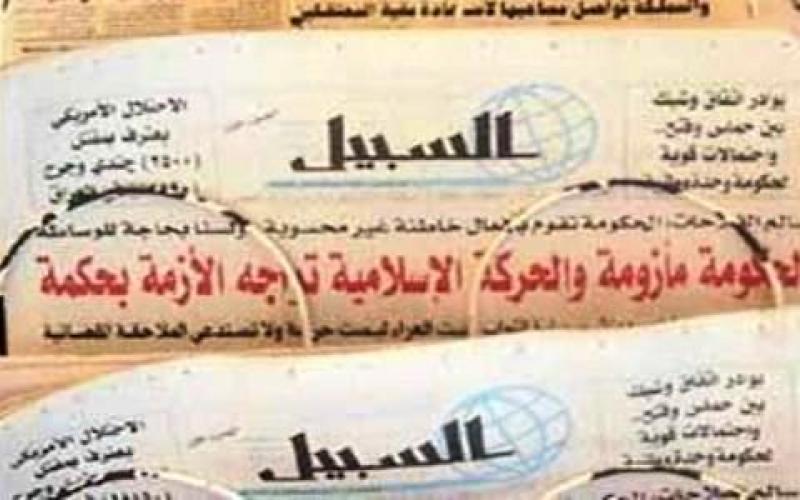 والسلطة تواصل مساعيها لاستعادة بقية المعتقلين
بوادر اتفاق وشيك
بين حماس وفتح..
واحتمالات قوية
لحكومة وحدة وطنية
السبيل
الاحتلال الأمريكي
يعترف بمقتل
(٢٥٠٠) جندي وجرح
سالم الفلاحات: الحكومة تقوم بأعمال خاطئة غير محسوبة.. ولسنا بحاجة للوساطة
الحكومة مأزومة والحركة الإسلامية تواجه الأزمة بحكمة
بيت العزاء ليست جريمة ولا تستدعي الملاحقة القضائية
بوادر اتفاق وشيك
بين حماس وفتح..
واحتمالات قوية
لحكومة وحدة وطنية
السبيل
الاحتلال الأمريكي
يعترف بمقتل